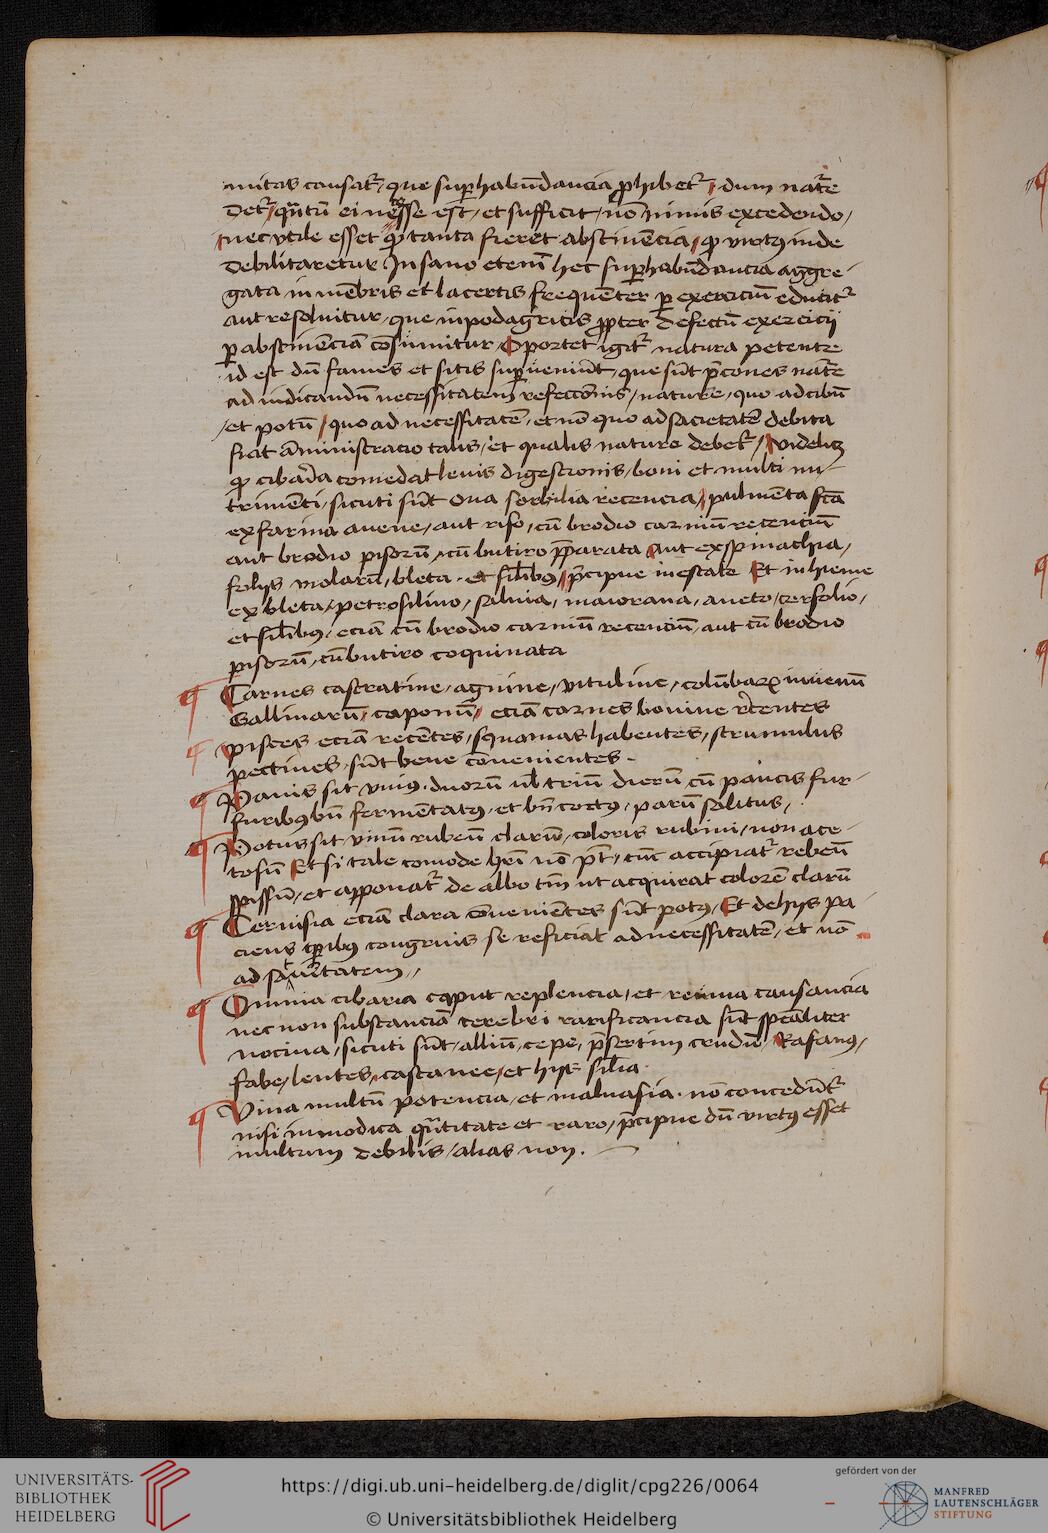 mitas causat᷑, que sup̱habūdancia ꝓhibet᷑, dum nat᷑e
det᷑, qn̄tū ei necesse est, et sufficit, nō nimis excedendo,
nec vtile esset ꝙ tanta fieret abstinēcia, ꝙ virtꝰ inde
debilitaretur In sano etenī hec sup̱habūdancia aggre-
gata in mēbris et lacertis frequēter ꝑ exerciciū educit᷑
aut resoluitur, que in podagricis ꝓpter defectū exercicij
ꝑ abstinēciā cōsumitur Oportet igit᷑ natura petente
id est dū fames et sitis sup̱ueniūt, que sūt p̄cones nat᷑e
ad indicandū necessitatem refeccōnis, nature, quo ad cibū
et potū, quo ad necessitatē, et nō quo ad sacietatē debita
fiat am̄inistracio talis, et qualis nature debet᷑, videlicz
ꝙ cibaria comedat leuis digestionis, boni et multi nu-
trimēti, sicuti sūt oua sorbilia recencia, pulmēta fc̄a
ex farina auene, aut riso, cū brodio carniū recenciū
aut brodio pisorū, cū butiro p̄parata aut ex spinachia,
folijs violarū, bleta, et sīlibꝰ, p̄cipue in estate Et in hieme
ex bleta, petrosilino, saluia, maiorana, aneto, cerfolio,
et sīlibꝰ, eciā cū brodio carniū recenciū, aut cū brodio
pisorū, cū butiro coquinata
Carnes castratine, agnine, vituline, colūbaꝝ iuuenū
Gallinarū, caponū, eciā carnes bouine rec̄entes
pisces eciā recētes, squamas habentes, strumulus
pectines, sūt bene cōuenientes.
Panis sit vniꝰ, duorū ul' triū dierū cū paucis fur-
furibꝰ bn̄ fermētatꝰ, et bn̄ coctꝰ, parū salitus,
Potus sit vinū rubeū clarū, coloris rubini, non ace-
tosū Et si tale comode h̄ri nō pt̄, tūc accipiat᷑ rebeū
spissū, et apponat᷑ de albo tm̄ ut acquirat colorē clarū
Ceruisia eciā clara cōuenientes sūt potꝰ, Et de hijs pa-
ciens tꝑibꝰ congruis se reficiat ad necessitatē, et nō
ad sacietatem,
Omnia cibaria caput replencia, et reuma causancia
nec non substanciā cerebri rarificancia sūt spēaliter
nociua, sicuti sūt, alliū, cepe, p̄sertim crudū, Rafanꝰ,
fabe, lentes, castanee, et hijs sīlia.
Vina multū potencia, et maluasia. nō concedūt᷑
nisi in modica qn̄titate et raro, p̄cipue dū virtꝰ esset
multum debilis, alias non.
UNIVERSITÄTS-
BIBLIOTHEK
HEIDELBERG
https://digi.ub.uni-heidelberg.de/diglit/cpg226/0064
© Universitätsbibliothek Heidelberg
gefördert von der
MANFRED
LAUTENSCHLÄGER
STIFTUNG